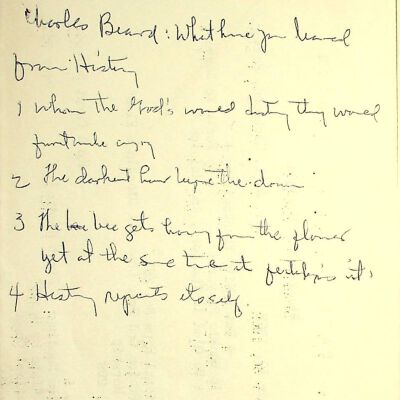 Charles Beard: What have you learned
from History
1 whom the God's would destroy they would
first make angry
2 The darkest hour before the dawn
3 The bee gets honey from the flower
yet at the same time it fertilizes it
4 History repeats itsself.